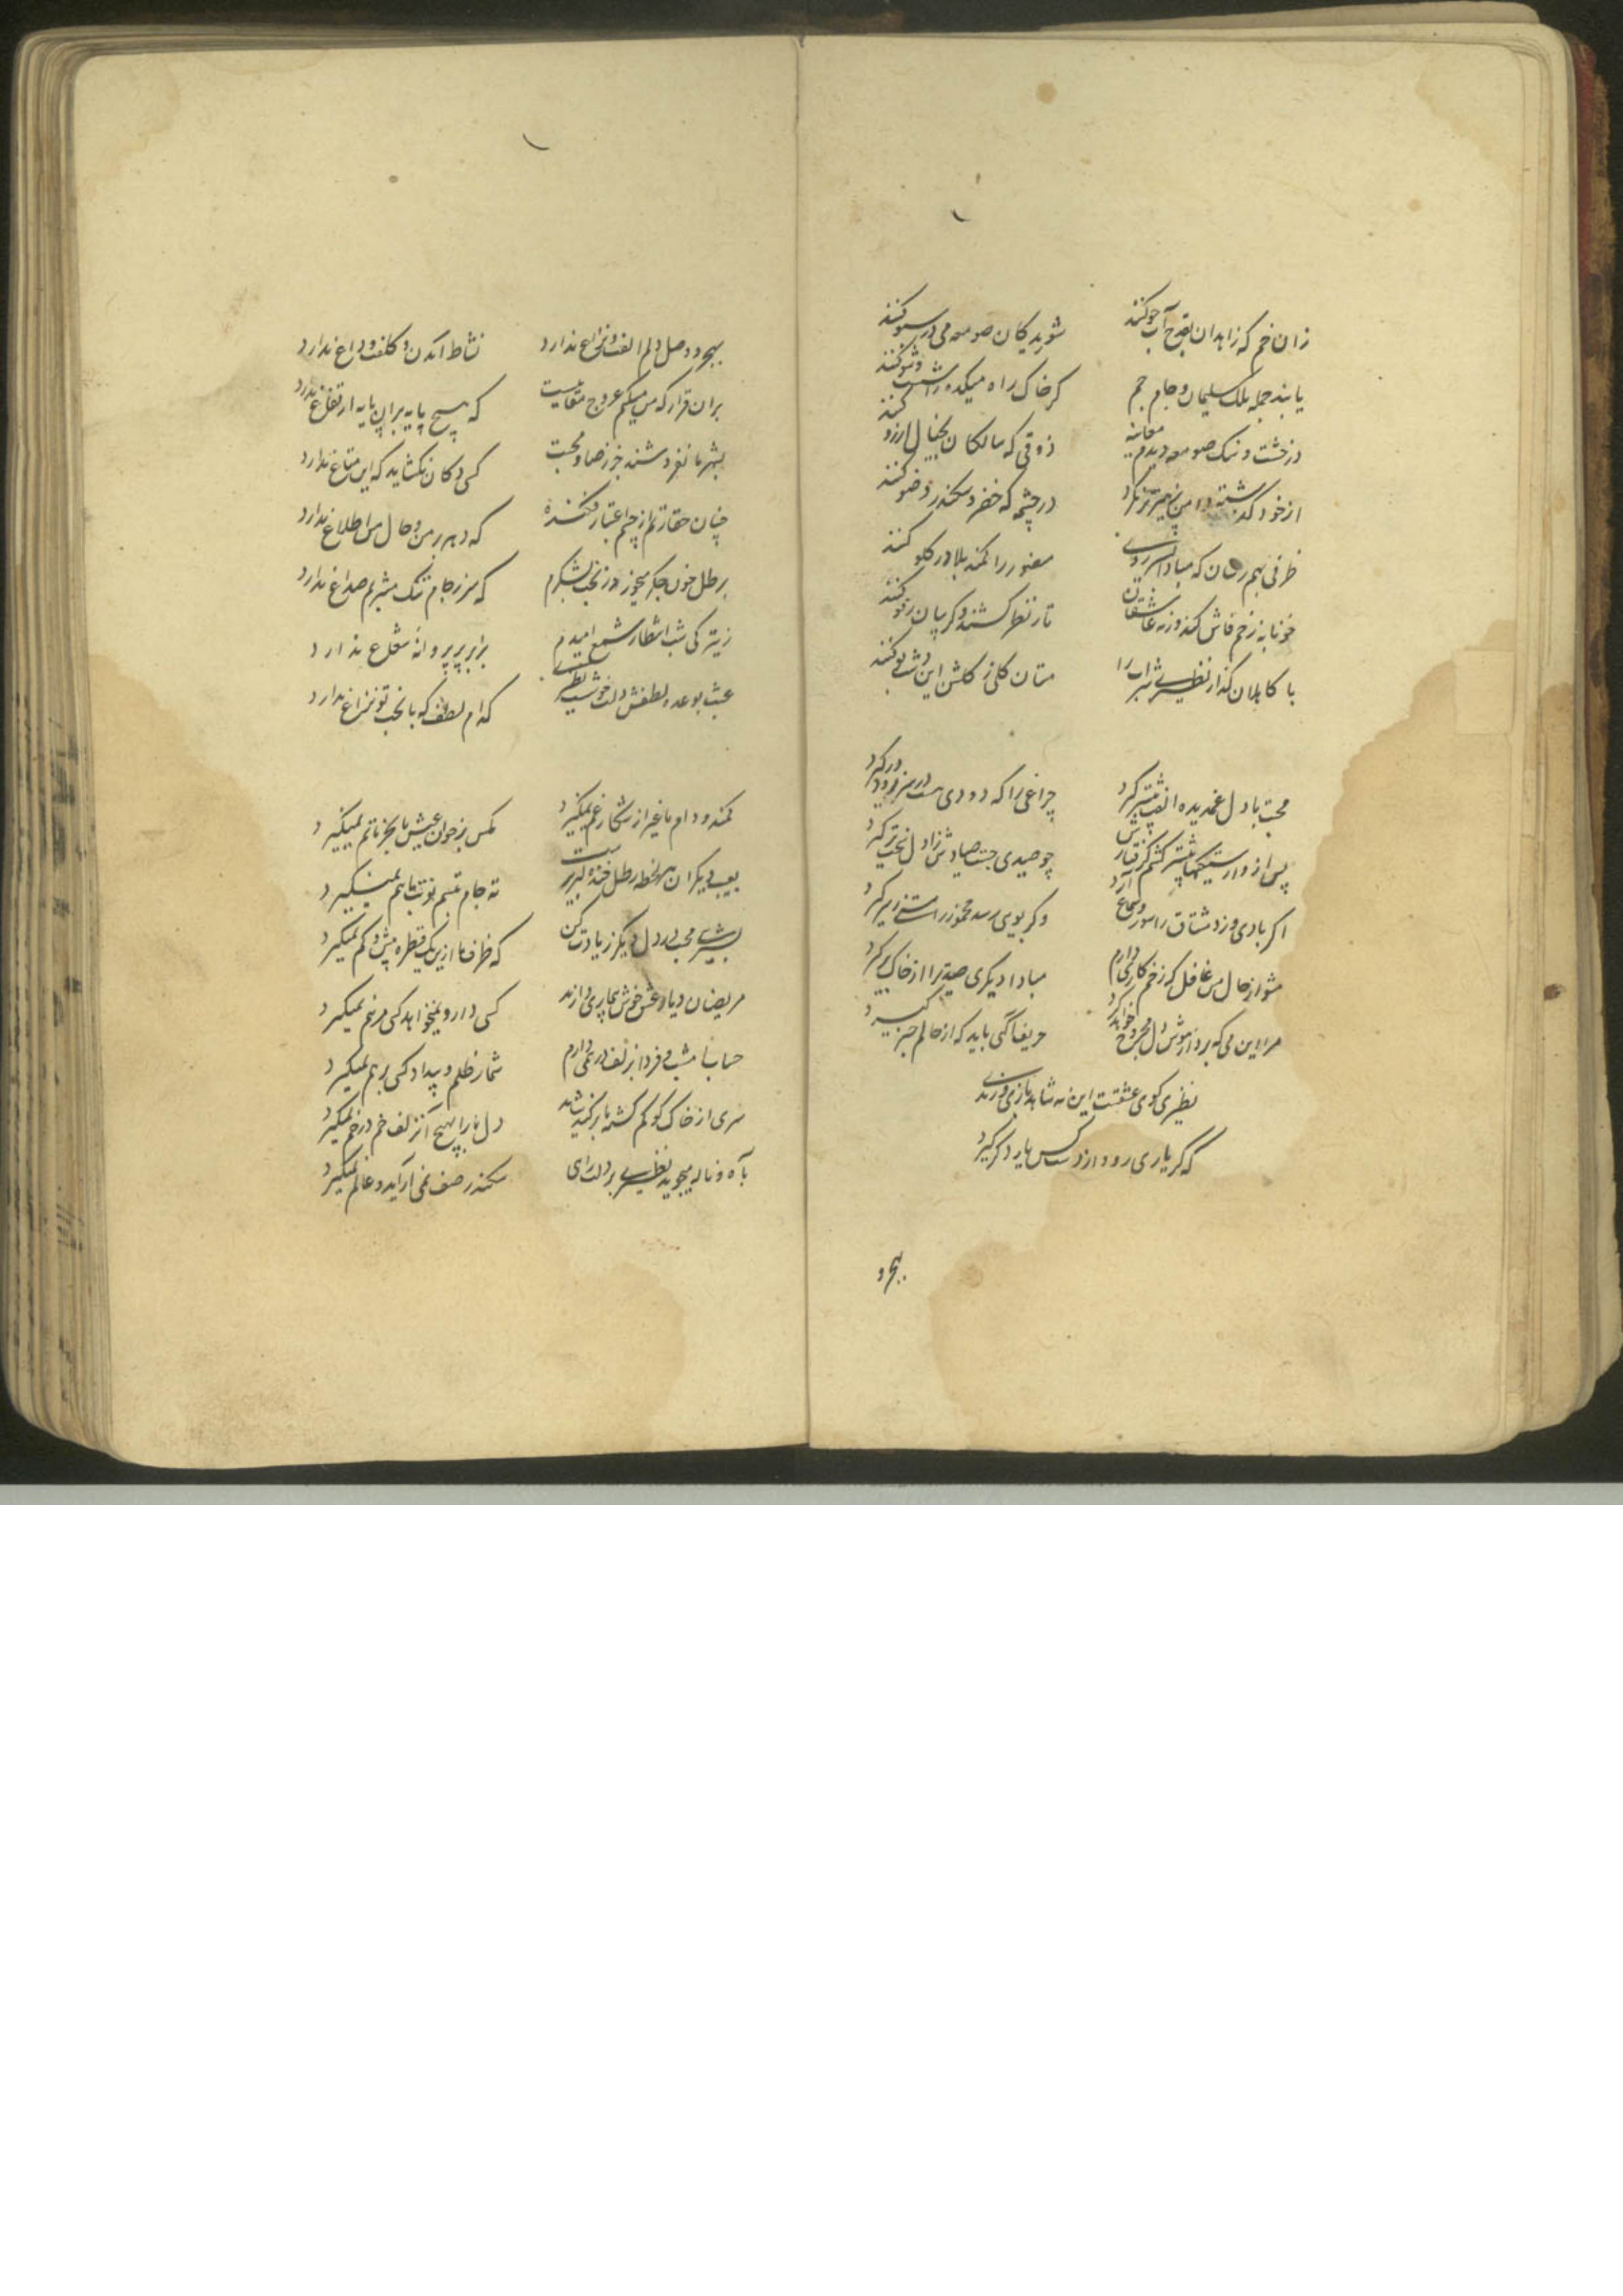 زان خم که زاهدان بقدح آب جو کنند
شوریدگان صومعه می در سبو کنند
یابند جمله ملک سلیمان و جام جم
گر خاک راه میکده را شست و شو کنند
در خشت و سنک صومعه دیدم معاینه
ذوقی که سالکان بخیال آرزو کنند
از خود گذشته دامن پرهیز تر نکرد
در چشمه که خضر و سکندر وضو کنند
ظرفی بهم رسان که مبادا
مغرور را کمند بلا در کلو کنند
خونابه ز زخم فاش کند وزنه عاشقان
تار نظر کشند و گریبان رفو کنند
با کاهلان گذار نظیری شراب را
مستان کلی ز کلشن این بو کنند
محبت با دل غمدیده الفت بیشتر گیرد
چراغی را که دودی هست در سر زود در گیرد
پس از وارستگیها بیشتر گشتم گرفتارش
چو صیدی جست صیادش ز اول سخت تر گیرد
اگر بادی وزد مشتاق را سوز و سماع آرد
وگر بویی رسد مخمور را مستی ز سر گیرد
مشو از حال من غافل که زخم کاری دارم
مبادا دیگری صید ترا از خاک بر گیرد
مرا این می که برد از هوش دل مجروح خواهد کرد
حریف آگهی باید که از حالم خبر گیرد
نظیری کوی عشقست این نه شاهد بازی و رندی
که گر یاری رود از دست کس یار دگر گیرد
بهجر و
بهجر و وصل دلم الفت و نزاع ندارد
نشاط آمدن و کلفت وداع ندارد
بران قرار که من میکنم عروج مقامیست
که هیچ پایه بران پایه ارتفاع ندارد
بشهر ما نفروشند جز رضا و محبت
کسی دکان نگشاید که این متاع ندارد
چنان حقارتم از چشم اعتبار فکنده
که دهر بر من و حال من اطلاع ندارد
برطل خون جگر میخورد ز بخت بشکرم
که سر ز جام تنک مشربم صداع ندارد
ز تیرگی شب انتظار شمع امیدم
برابر پر پروانۀ شعاع ندارد
عبث بوعده لطفش دلت خوشست نظیری
کدام لطف که با بخت تو نزاع ندارد
کمند و دام ما غیر از شکار غم نمیگیرد
مگس بر خوان عیش ما بجز ماتم نمیگیرد
بعیب دیگران هر لحظه رطل خنده لبریزست
ته جام تبسم نوبت ما هم نمیگیرد
بشیرینی محبت در دل دیگر زیادت کن
که ظرف ما ازین یک قطره بیش و کم نمیگیرد
مریضان دیار عشق خوش بیماریی دارند
کسی دارو نمیخواهد کسی مرهم نمیگیرد
حساب امشب و فردا بزلف در نمی دارم
شمار ظلم و بیداد کسی بر هم نمیگیرد
سری از خاک کو کم کشته باز کنید شاید
دل ما را بهیچ آن زلف خم در خم نمیگیرد
بآه و ناله میجوید نظیری بر دلت رای
سکندر صف نمی آراید و عالم نمیگیرد